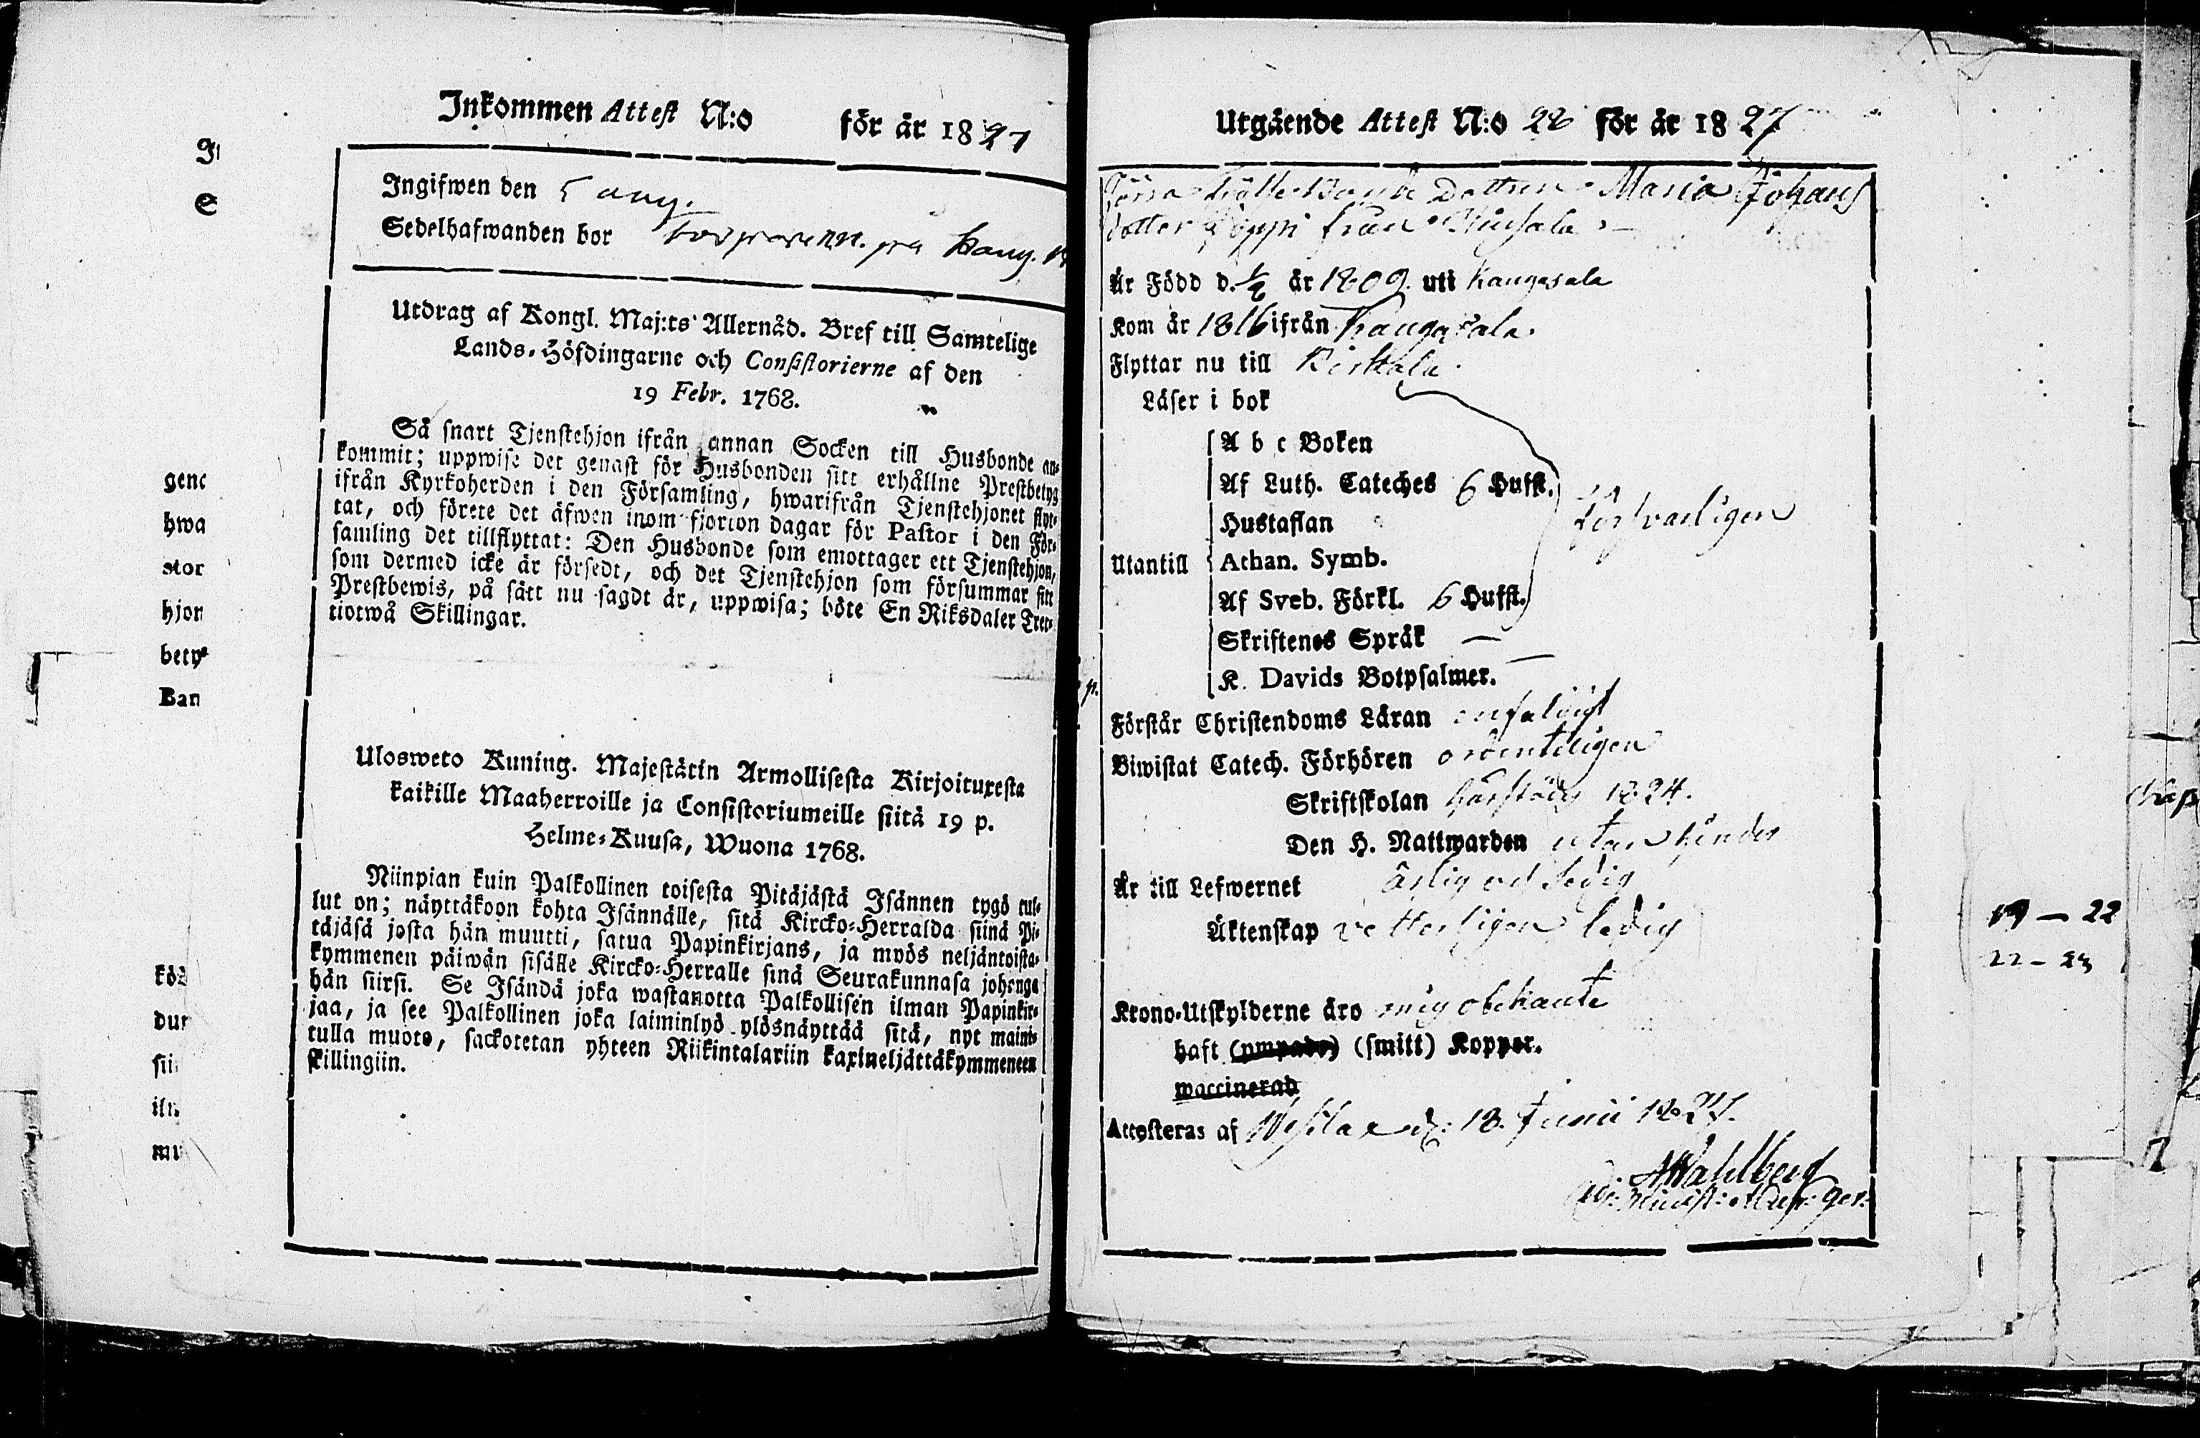 Inkommen Attest N:o för år 1827
Ingifwen den 5 aug.
Sedelhafwanden bor på
Utdrag af Kongl. Maj:ts Allernåd. Bref till Samtelige
Lands-Höfdingarne och Consistorierne af den
19 Febr. 1768.
Så snart Tjenstehjon ifrån annan Socken till Husbonde an-
kommit; uppwise det genast för Husbonden sitt erhållne Prestbetyg
ifrån Kyrkoherden i den Församling, hwarifrån Tjenstehjonet flyt-
tat, och förete det äfwen inom fjorton dagar för Pastor i den För-
samling det tillflyttat: Den Husbonde som emottager ett Tjenstehjon,
som dermed icke är försedt, och det Tjenstehjon som försummar sitt
Prestbewis, på sätt nu sagdt är, uppwisa; böte En Riksdaler Tret-
tiotwå Skillingar.
Ulosweto Kuning. Majestätin Armollisesta Kirjoituxesta
kaikille Maaherroille ja Consistoriumeille siitä 19 p.
Helme-Kuusa, Wuona 1768.
Niinpian kuin Palkollinen toisesta Pitäjästä Isännen tygö tul-
lut on; näyttäköön kohta Isännälle, sitä Kircko-Herralda siinä Pi-
täjäsä josta hän muutti, saatua Papinkirjans, ja myös neljäntoista-
kymmenen päiwän sisälle Kircko-Herralle siinä Seurakunnasa johonga
hän siirsi. Se Isändä joka wastanotta Palkollisen ilman Papinkir-
jaa, ja see Palkollinen joka laiminlyö ylösnäyttää sitä, nyt maini-
tulla muoto, sackotetan yhteen Riikintalariin kaxineljättäkymmeneen
skillingiin.
Utgående Attest N:o 28 för år 1827
Bonde Dottren Maria Johans
dotter från
Är Född d. 1/2 år 1809. uti Kangasala
Kom år 1816 ifrån Kangasala.
Flyttar nu till Birkkala.
Läser i bok
A b c Boken
Af Luth. Cateches 6 Hufst.
Hustaflan
försvarligen
Utantill Athan. Symb.
Af Sveb. Förkl. 6 Hufst.
Skriftenes Språk —
K. Davids Botpsalmer. —
Förstår Christendoms Läran enfaldigt
Biwistat Catech. Förhören ordenteligen
Skriftskolan härstädes 1824.
Den H. Nattwarden utan hinder
Är till Lefwernet ärlig och sedig
Äktenskap vetterligen ledig
Krono-Utskylderne äro mig obekante
haft (ympade) (smitt) Kopper.
waccinerad
Attesteras af d: 18. Junii 1827.
Wahlberg
genc
hwa
stor
hjon
bety
Ban
kös
dur
sii
iln
mu
19 — 22
22 — 23